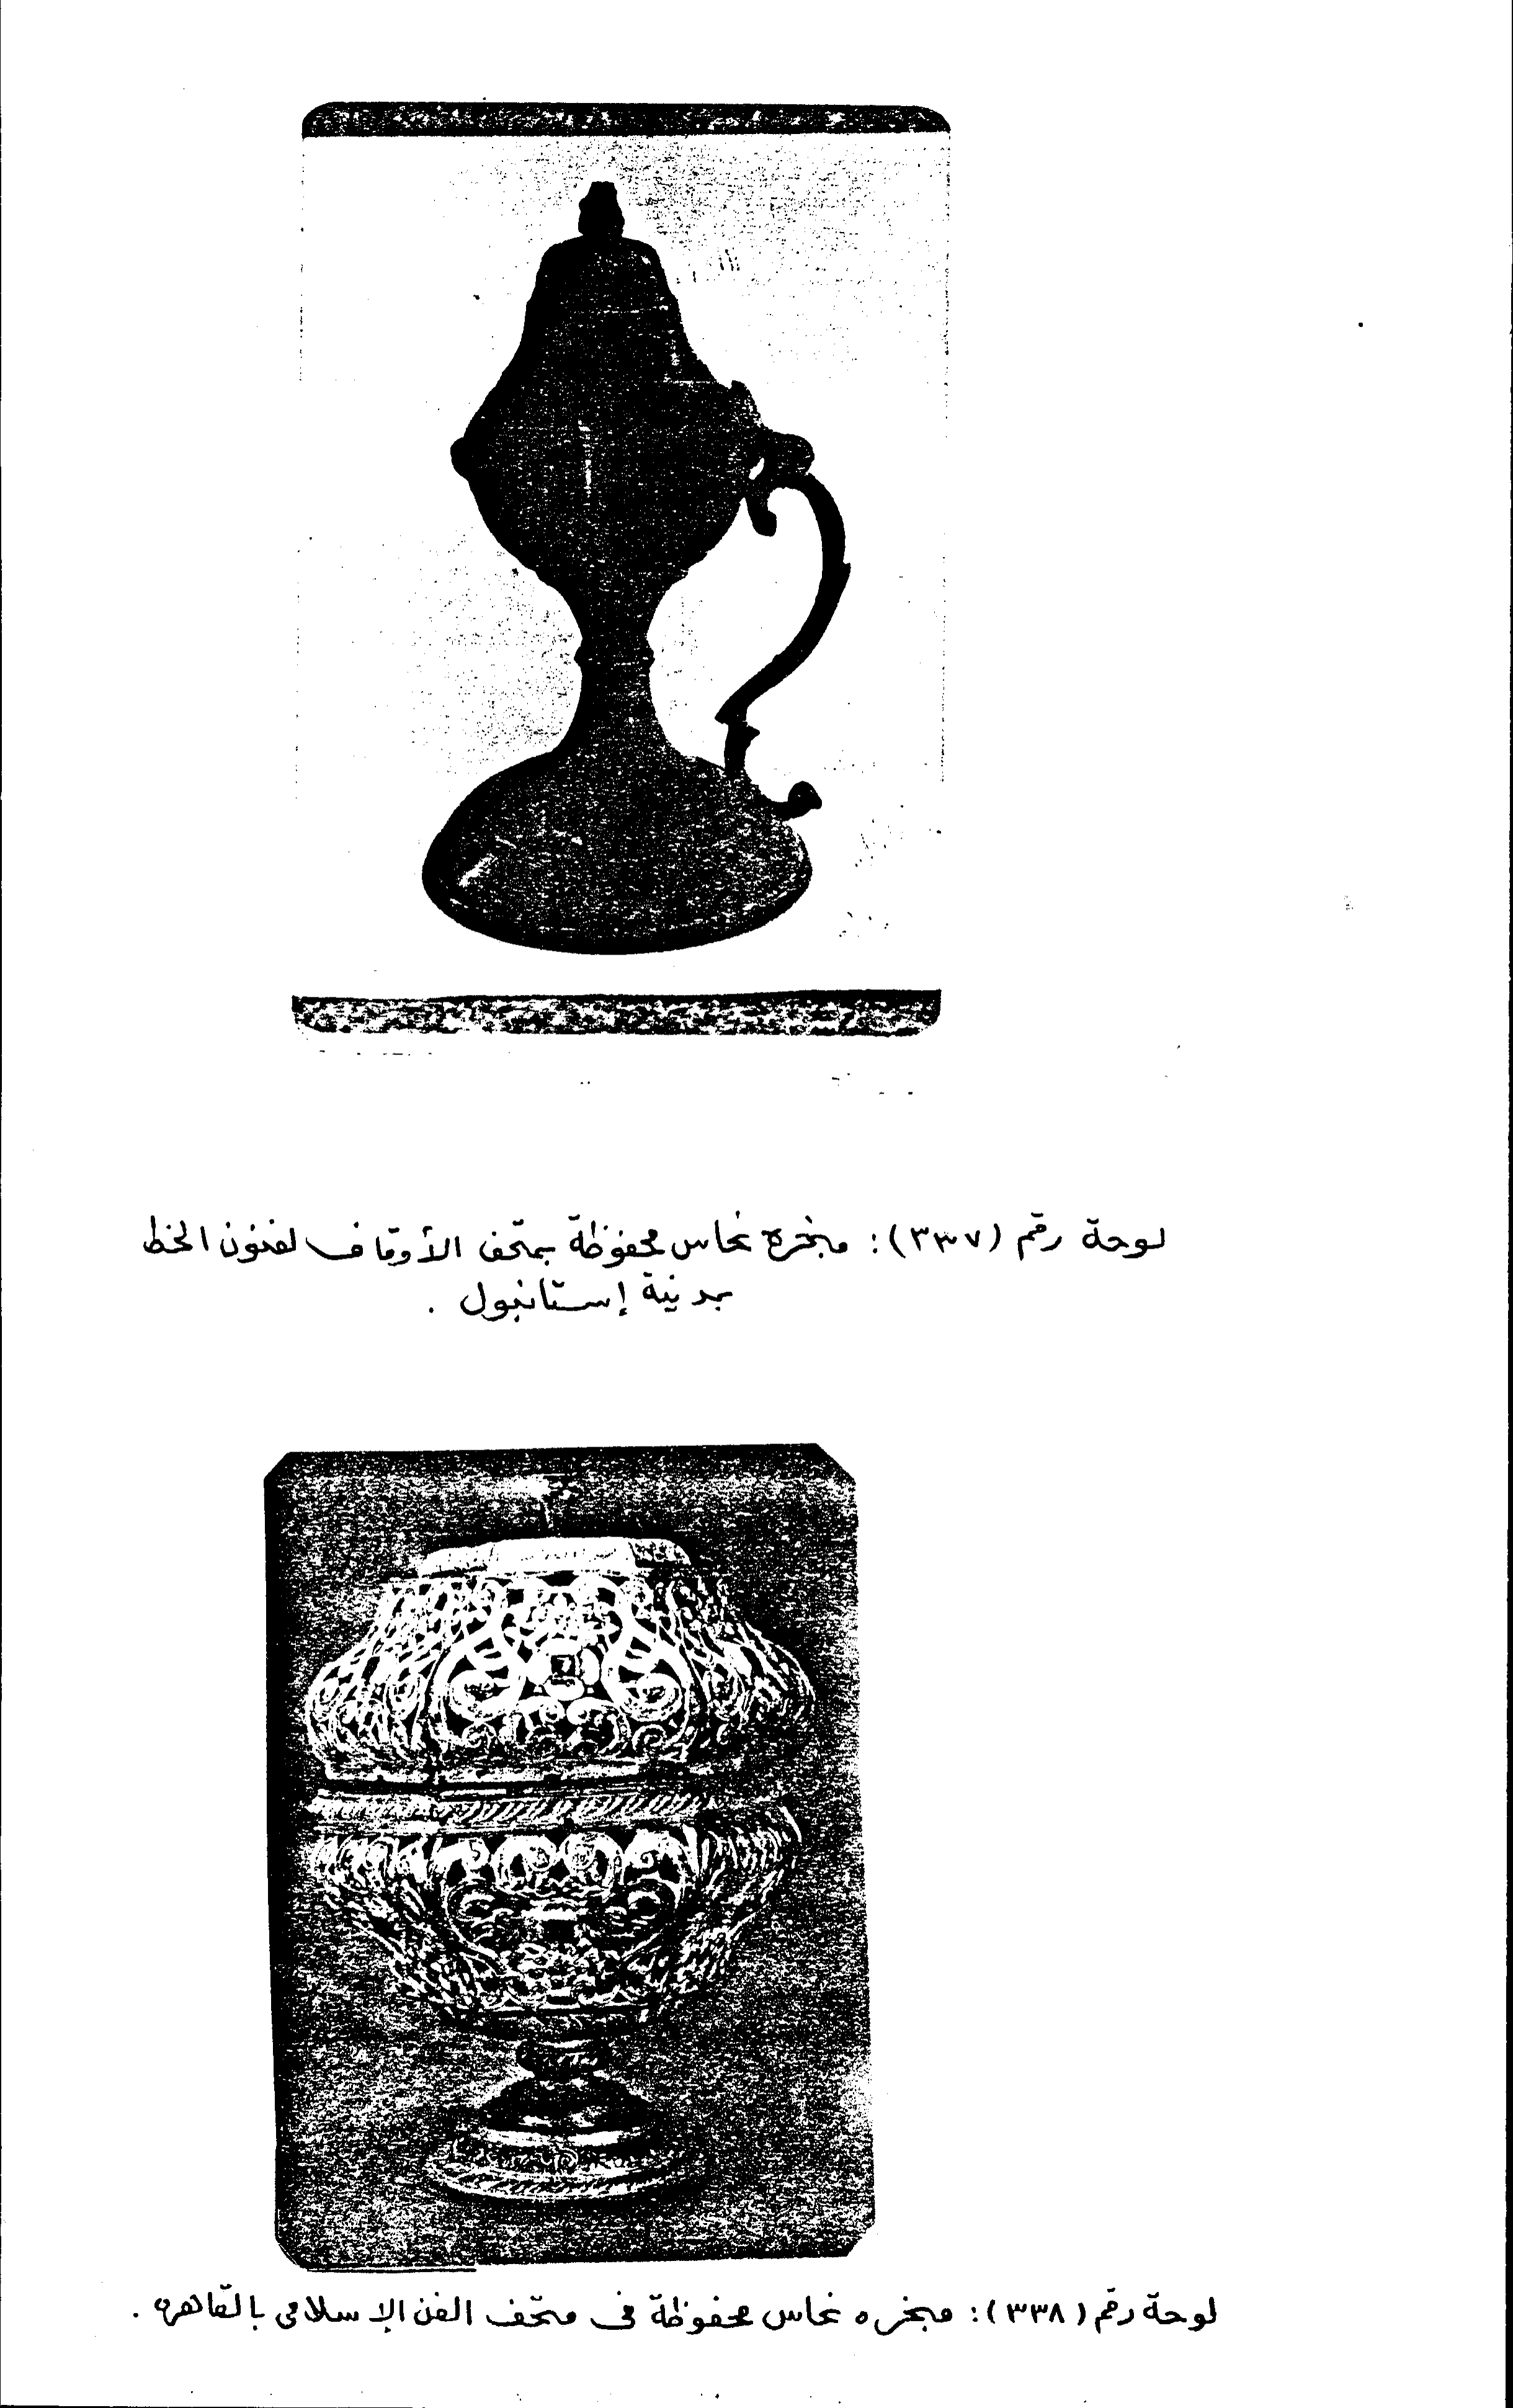 لوحة رقم (٣٣٧): مبخره نحاس محفوظة بمتحف الأوقاف لفنون الخط
بمدينة إستانبول .
لوحة رقم (٣٣٨): مبخره نحاس محفوظة فى متحف الفن الإسلامى بالقاهره .